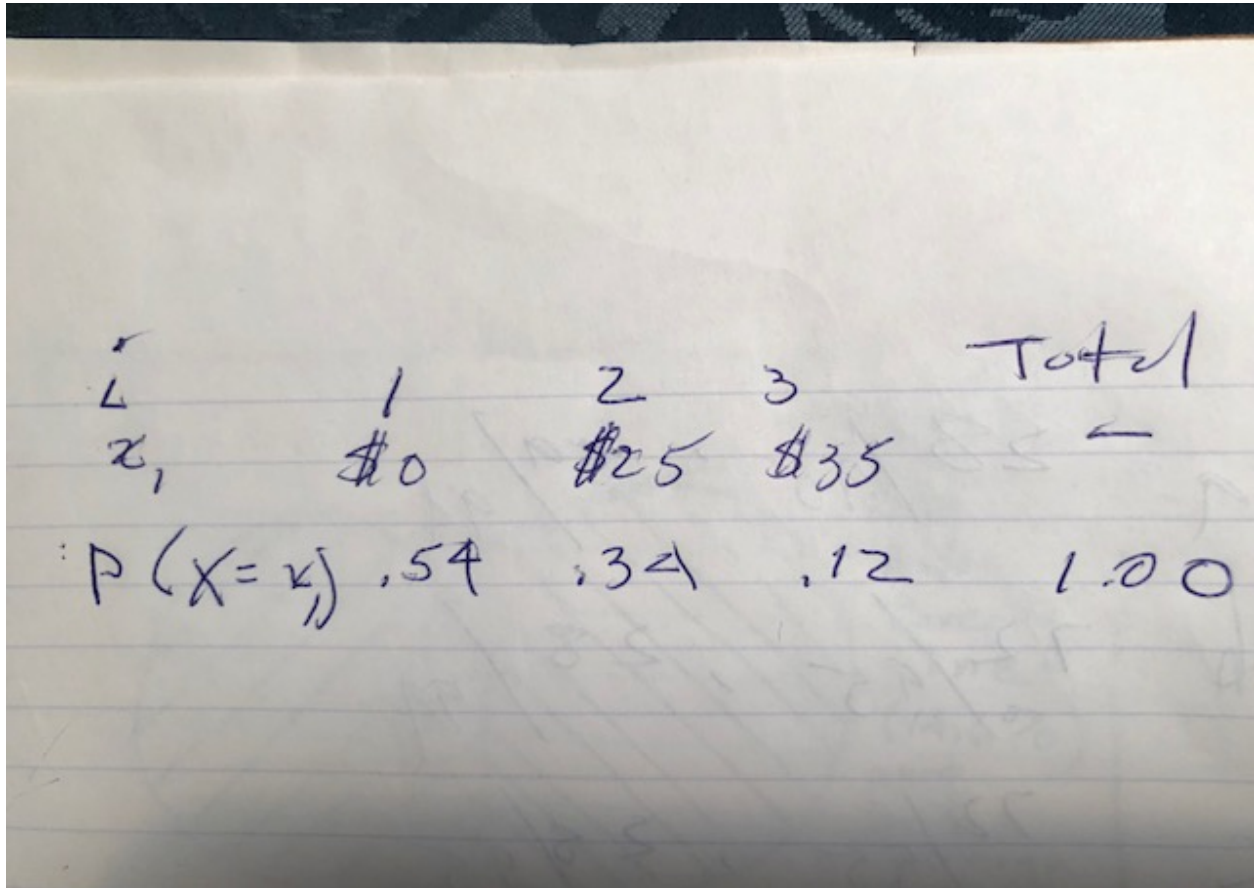 i 1 2 3 Total
x, $0 $25 $35 —
P(X=x,) .54 .34 .12 1.00